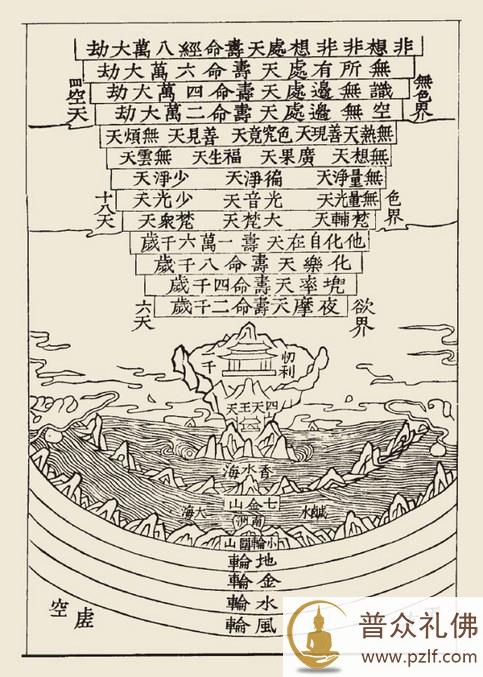 非想非非想處天壽命經八萬大劫
無所有處天壽命六萬大劫
識無邊處天壽命四萬大劫
空無邊處天壽命二萬大劫
無色界
四空天
無熱天 善現天 色究竟天 善見天 無煩天
無想天 廣果天 福生天 無雲天
無量淨天 徧淨天 少淨天
無量光天 光音天 少光天
梵輔天 大梵天 梵衆天
色界
十八天
他化自在天壽一萬六千歲
化樂天壽命八千歲
兜率天壽命四千歲
夜摩天壽命二千歲
欲界
六天
忉利 千
四天王天
香水海
七金山
鹹水 大海
南洲
小輪圍山
地輪
金輪
水輪
風輪
虛空
普众礼佛
www.pzlf.com